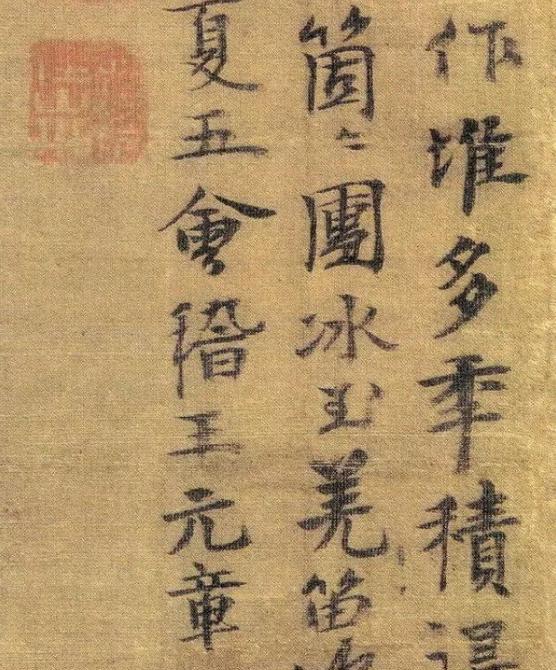 作堆多年積得
箇〻團冰玉羌笛
夏五會稽王元章